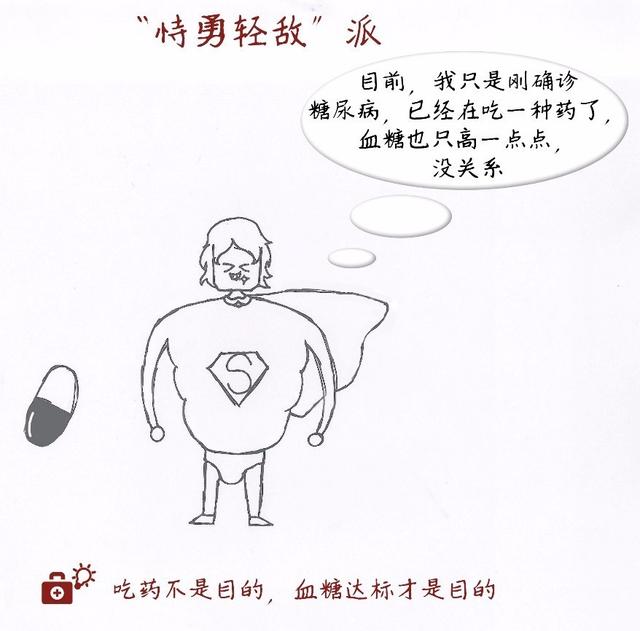 “恃勇轻敌”派
目前，我只是刚确诊
糖尿病，已经在吃一种药了，
血糖也只高一点点，
没关系
S
吃药不是目的，血糖达标才是目的